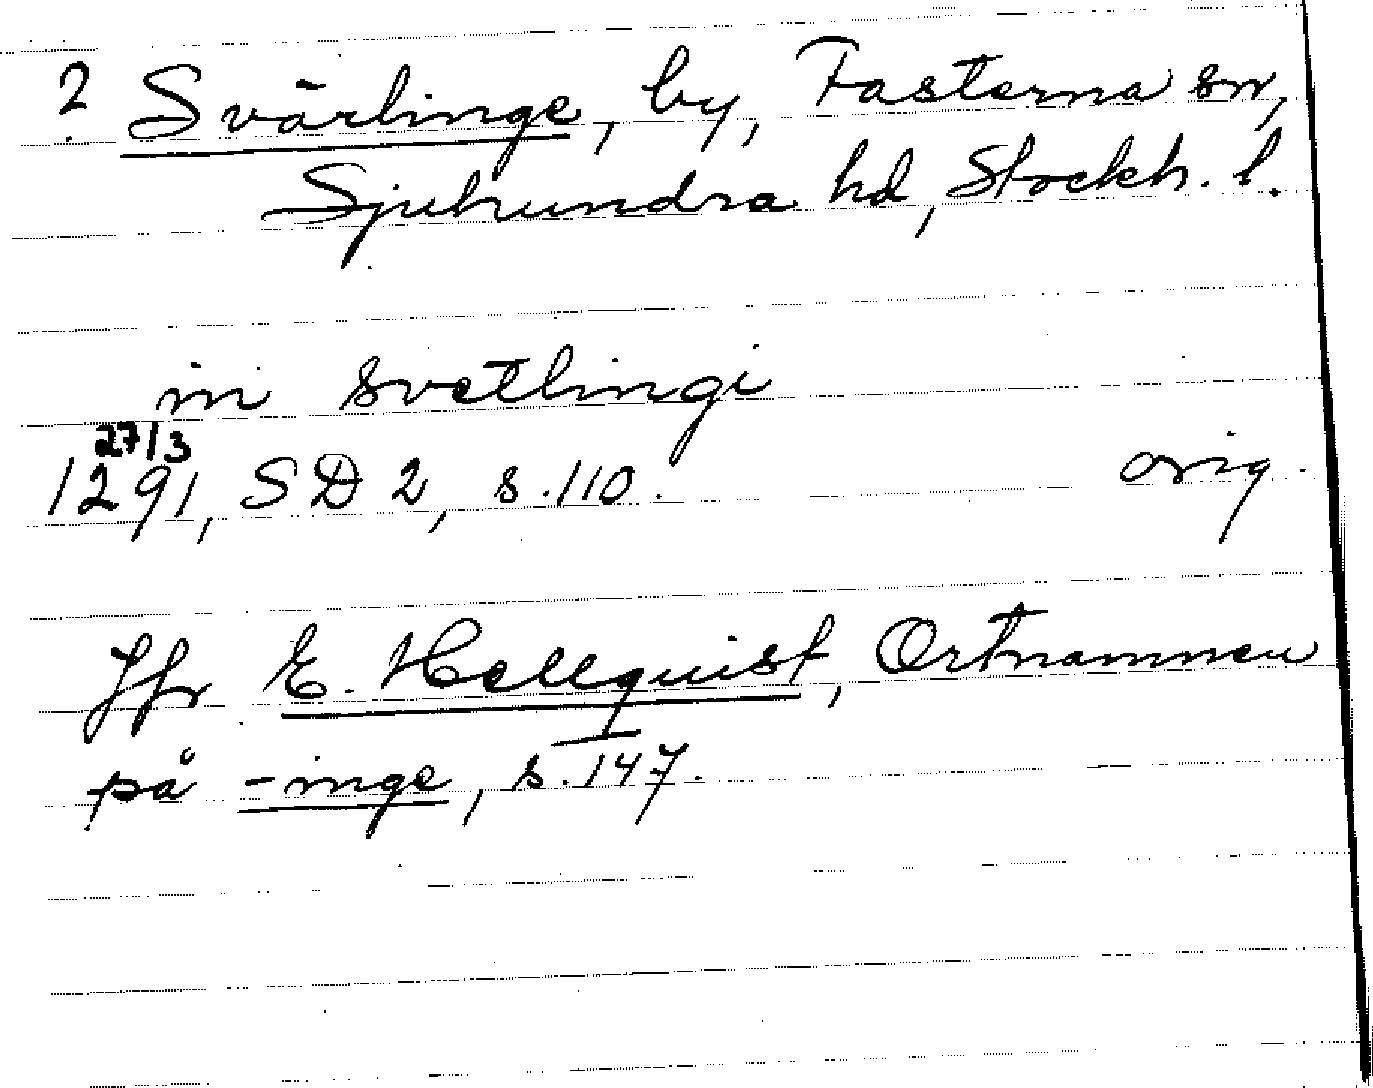 ? Svärlinge, by, Fasterna sn,
Sjuhundra hd, Stockh. l.
in svetlingi
27/3
1291, SD 2, s. 110. orig.
Jfr E. Hellquist, Ortnamnen
på -inge, s. 147.